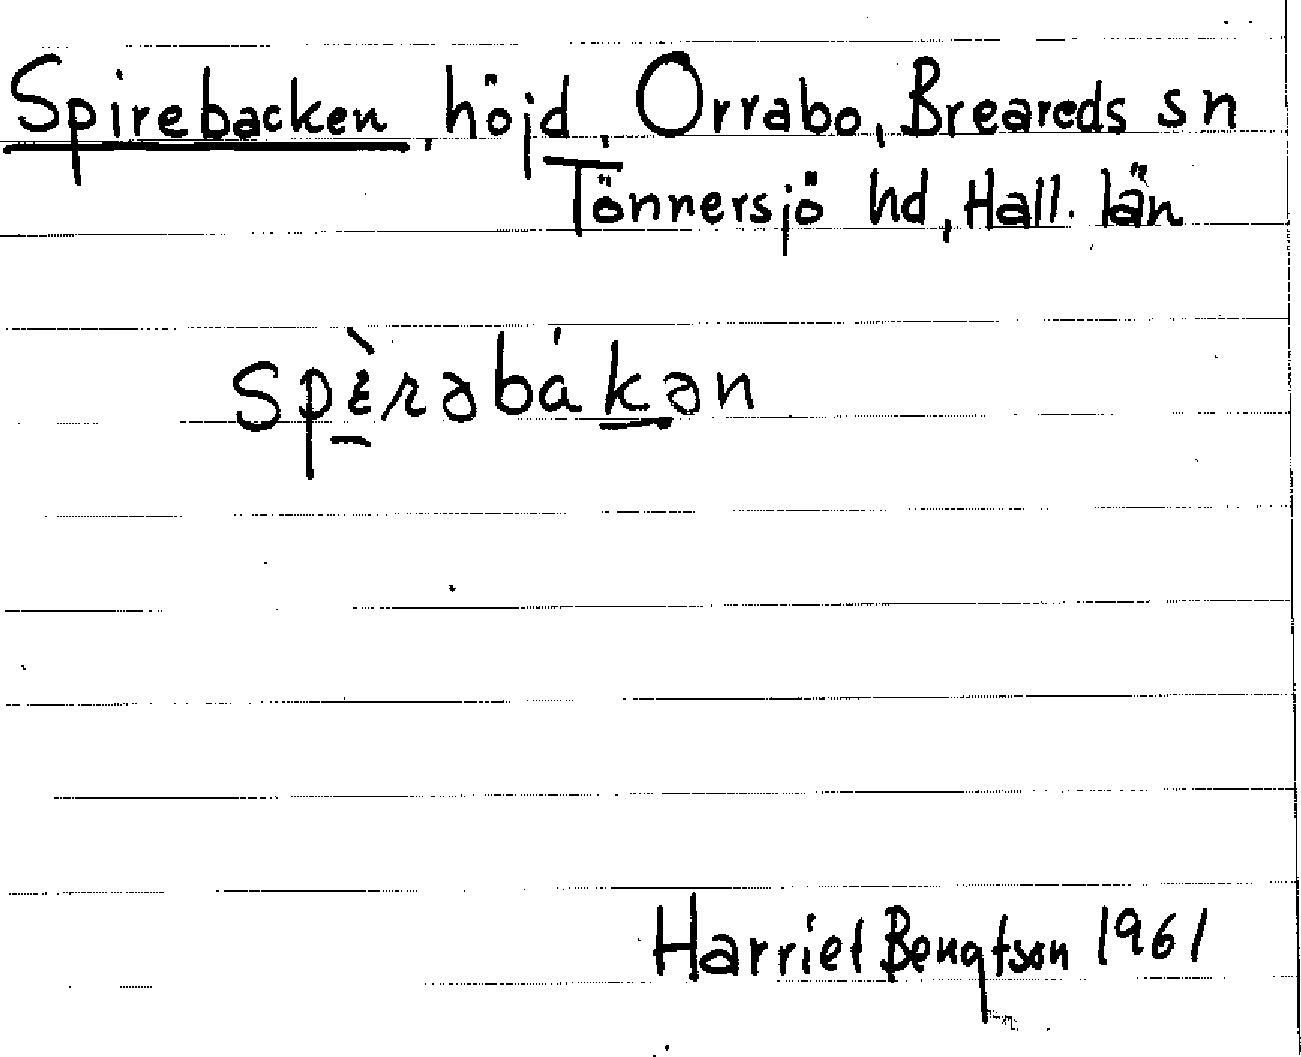 Spirebacken, höjd, Orrabo, Breareds sn
Tönnersjö hd, Hall. län
spèrəbákən
Harriet Bengtson 1961